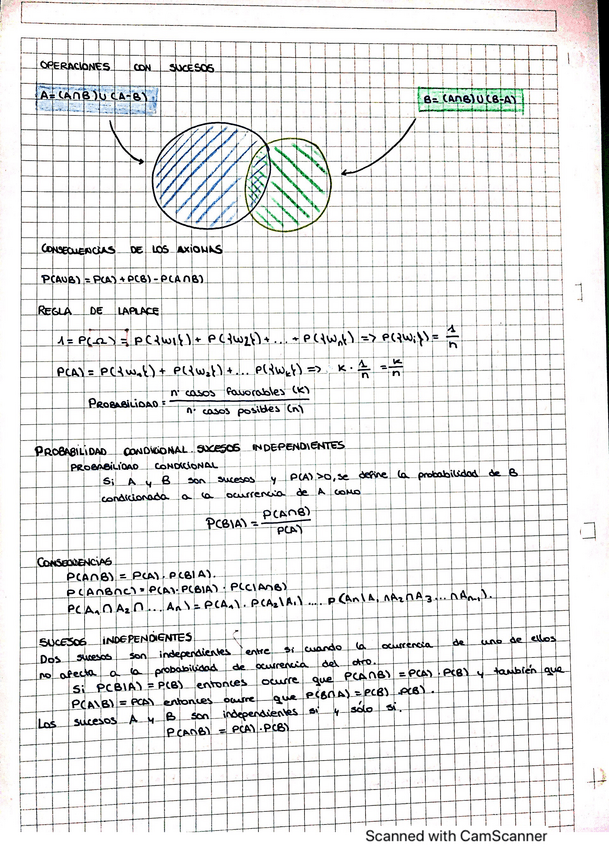 OPERACIONES CON SUCESOS
A=(A∩B)∪(A-B).
B=(A∩B)∪(B-A)
CONSECUENCIAS DE LOS AXIOMAS
P(A∪B) = P(A) + P(B) - P(A∩B)
REGLA DE LAPLACE
1 = P(Ω) = P({ω1}) + P({ω2}) + ... + P({ωn}) => P({ωi}) = 1/n
P(A) = P({ω1}) + P({ω2}) + ... P({ωk}) => k · 1/n = k/n
PROBABILIDAD = nº casos favorables (k) / nº casos posibles (n)
PROBABILIDAD CONDICIONAL. SUCESOS INDEPENDIENTES
PROBABILIDAD CONDICIONAL
Si A y B son sucesos y P(A) >0, se define la probabilidad de B
condicionada a la ocurrencia de A como
P(B|A) = P(A∩B) / P(A)
CONSECUENCIAS
P(A∩B) = P(A) · P(B|A).
P(A∩B∩C) = P(A) · P(B|A) · P(C|A∩B)
P(A1∩A2∩ ... An) = P(A1) · P(A2|A1) .... P(An|A1∩A2∩A3...∩An-1).
SUCESOS INDEPENDIENTES
Dos sucesos son independientes entre sí cuando la ocurrencia de uno de ellos
no afecta a la probabilidad de ocurrencia del otro.
Si P(B|A) = P(B) entonces ocurre que P(A∩B) = P(A) · P(B) y también que
P(A|B) = P(A) entonces ocurre que P(B∩A) = P(B) · P(B).
Los sucesos A y B son independientes si y sólo si.
P(A∩B) = P(A) · P(B)
Scanned with CamScanner